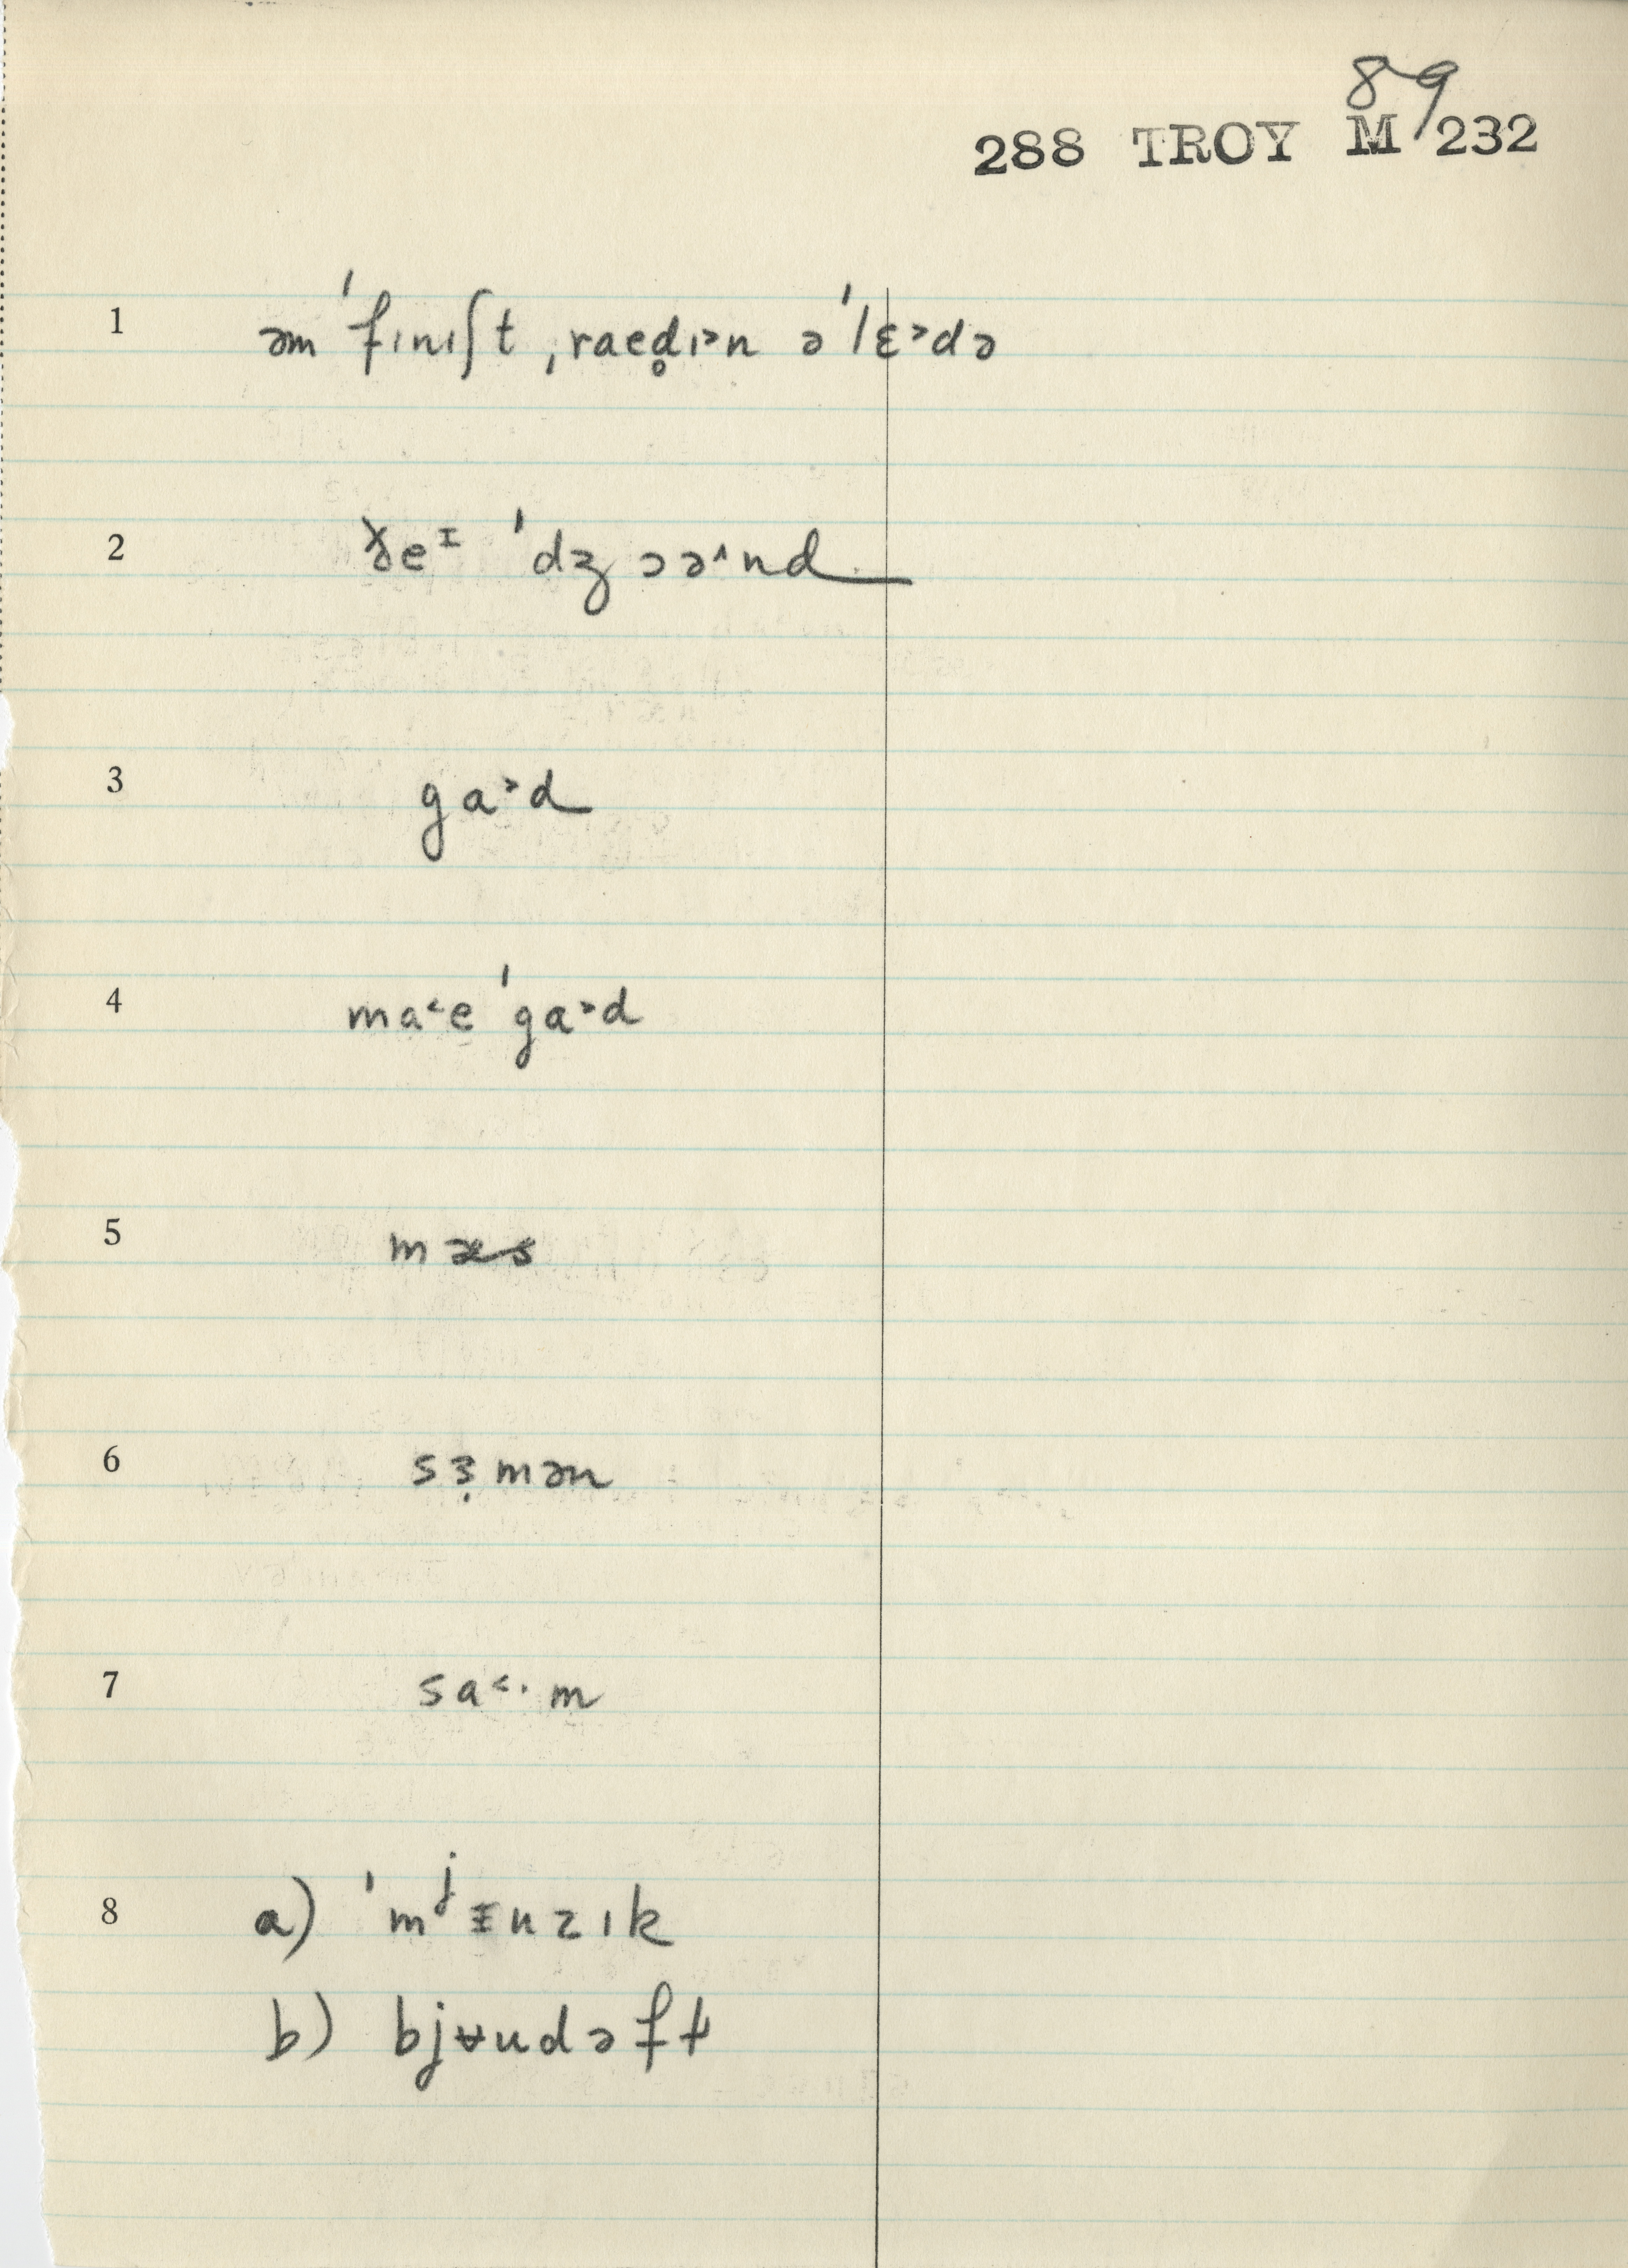 89
288 TROY M 232
1 əm ˈfɪnɪʃt ˌraed̥ɪ˃n əˈlɛ˃də
2 ɤeᶦ ˈdʒɔə˄nd
3 ga˃d
4 ma˂e ˈga˃d
5 mæs
6 sɜ̣mən
7 sa˂·m
8 a) ˈmʲɪuzɪk
b) bjʉudəft